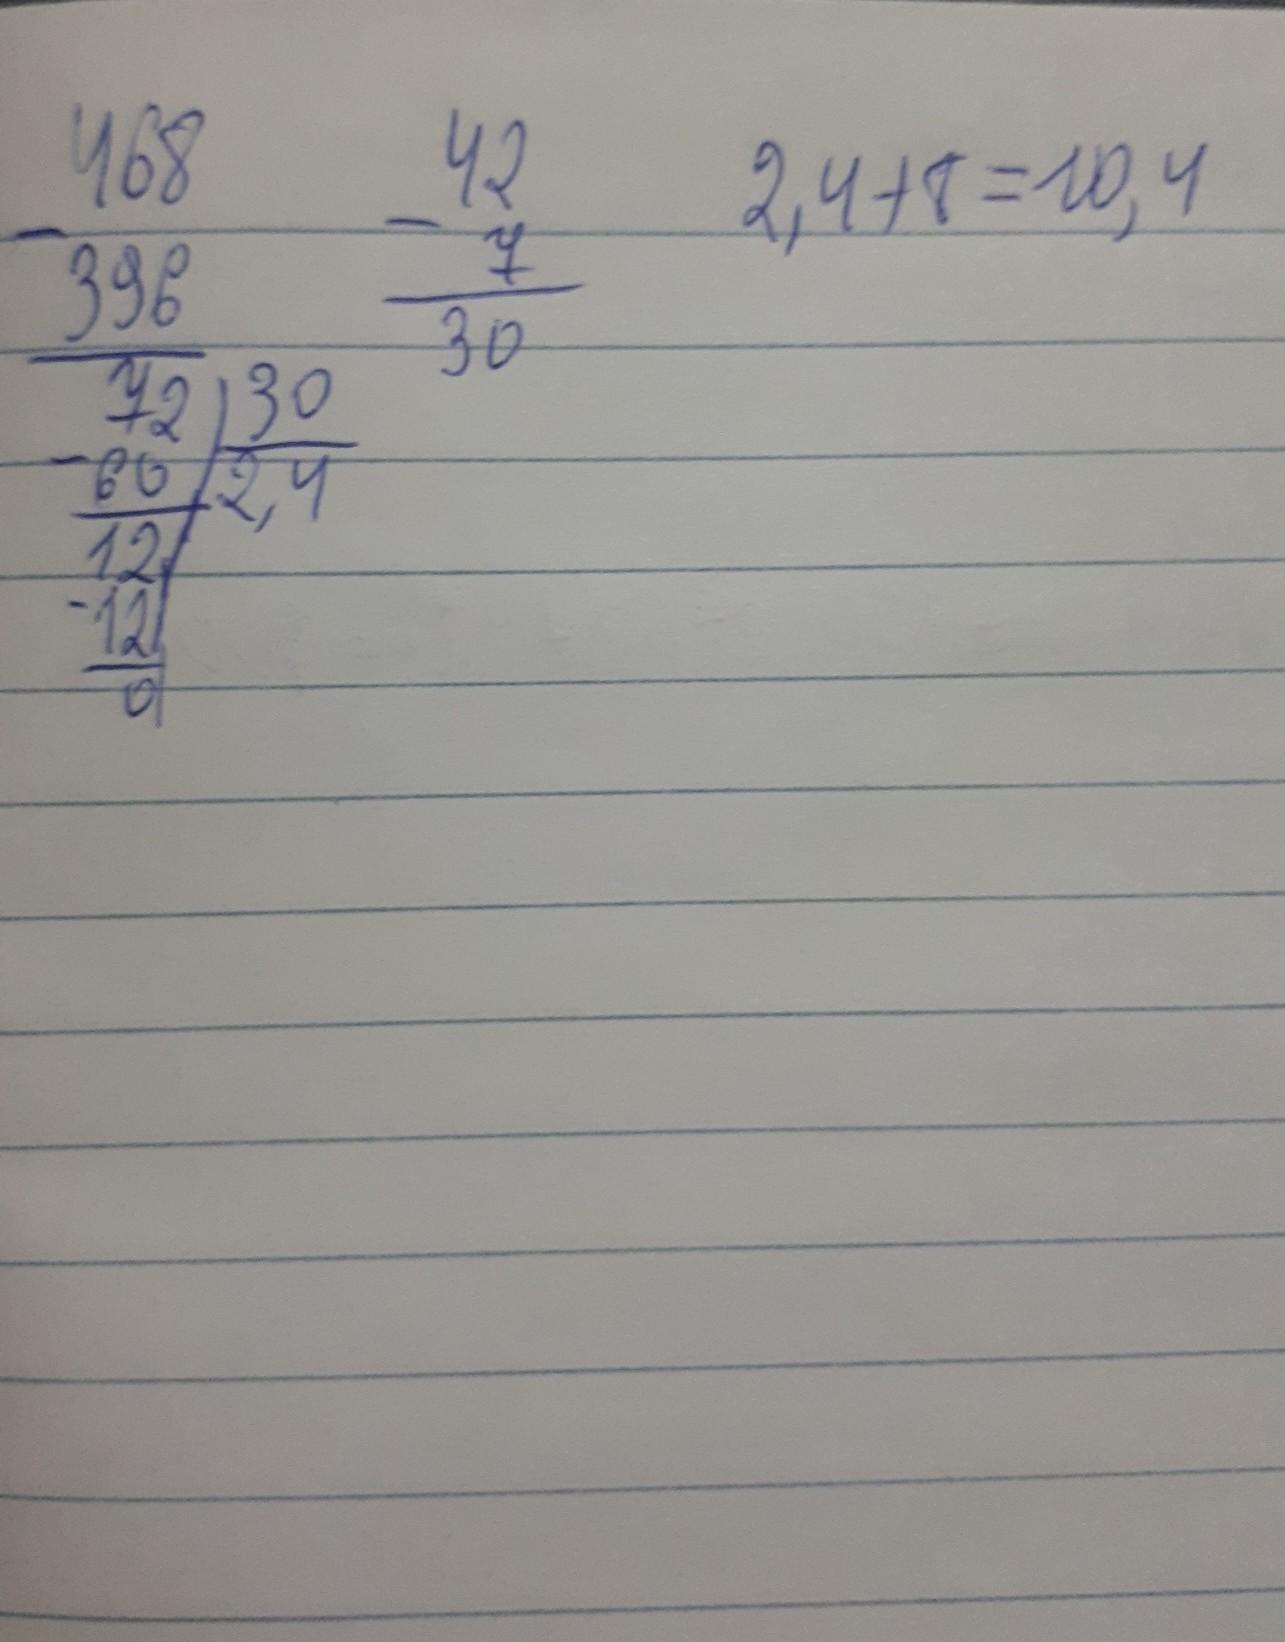 468
-
396
72 | 30
- 60 2,4
12
-12
0
42
-
7
30
2,4+8=10,4